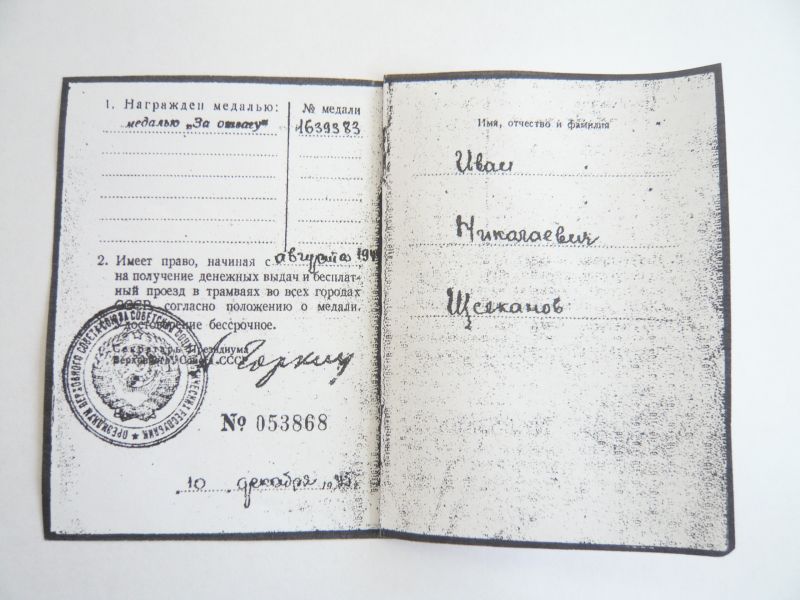 1. Награжден медалью:
№ медали
медалью „За отвагу“
1639383
2. Имеет право, начиная с августа 194
на получение денежных выдач и бесплат-
ный проезд в трамваях во всех городах
СССР, согласно положению о медали.
достоверение бессрочное.
Секретарь Президиума
Верховного Совета СССР
Горкин
ПРЕЗИДИУМ ВЕРХОВНОГО СОВЕТА СОЮЗА СОВЕТСКИХ СОЦИАЛИСТИЧЕСКИХ РЕСПУБЛИК
№ 053868
10 декабря 19
Имя, отчество и фамилия
Иван
Николаевич